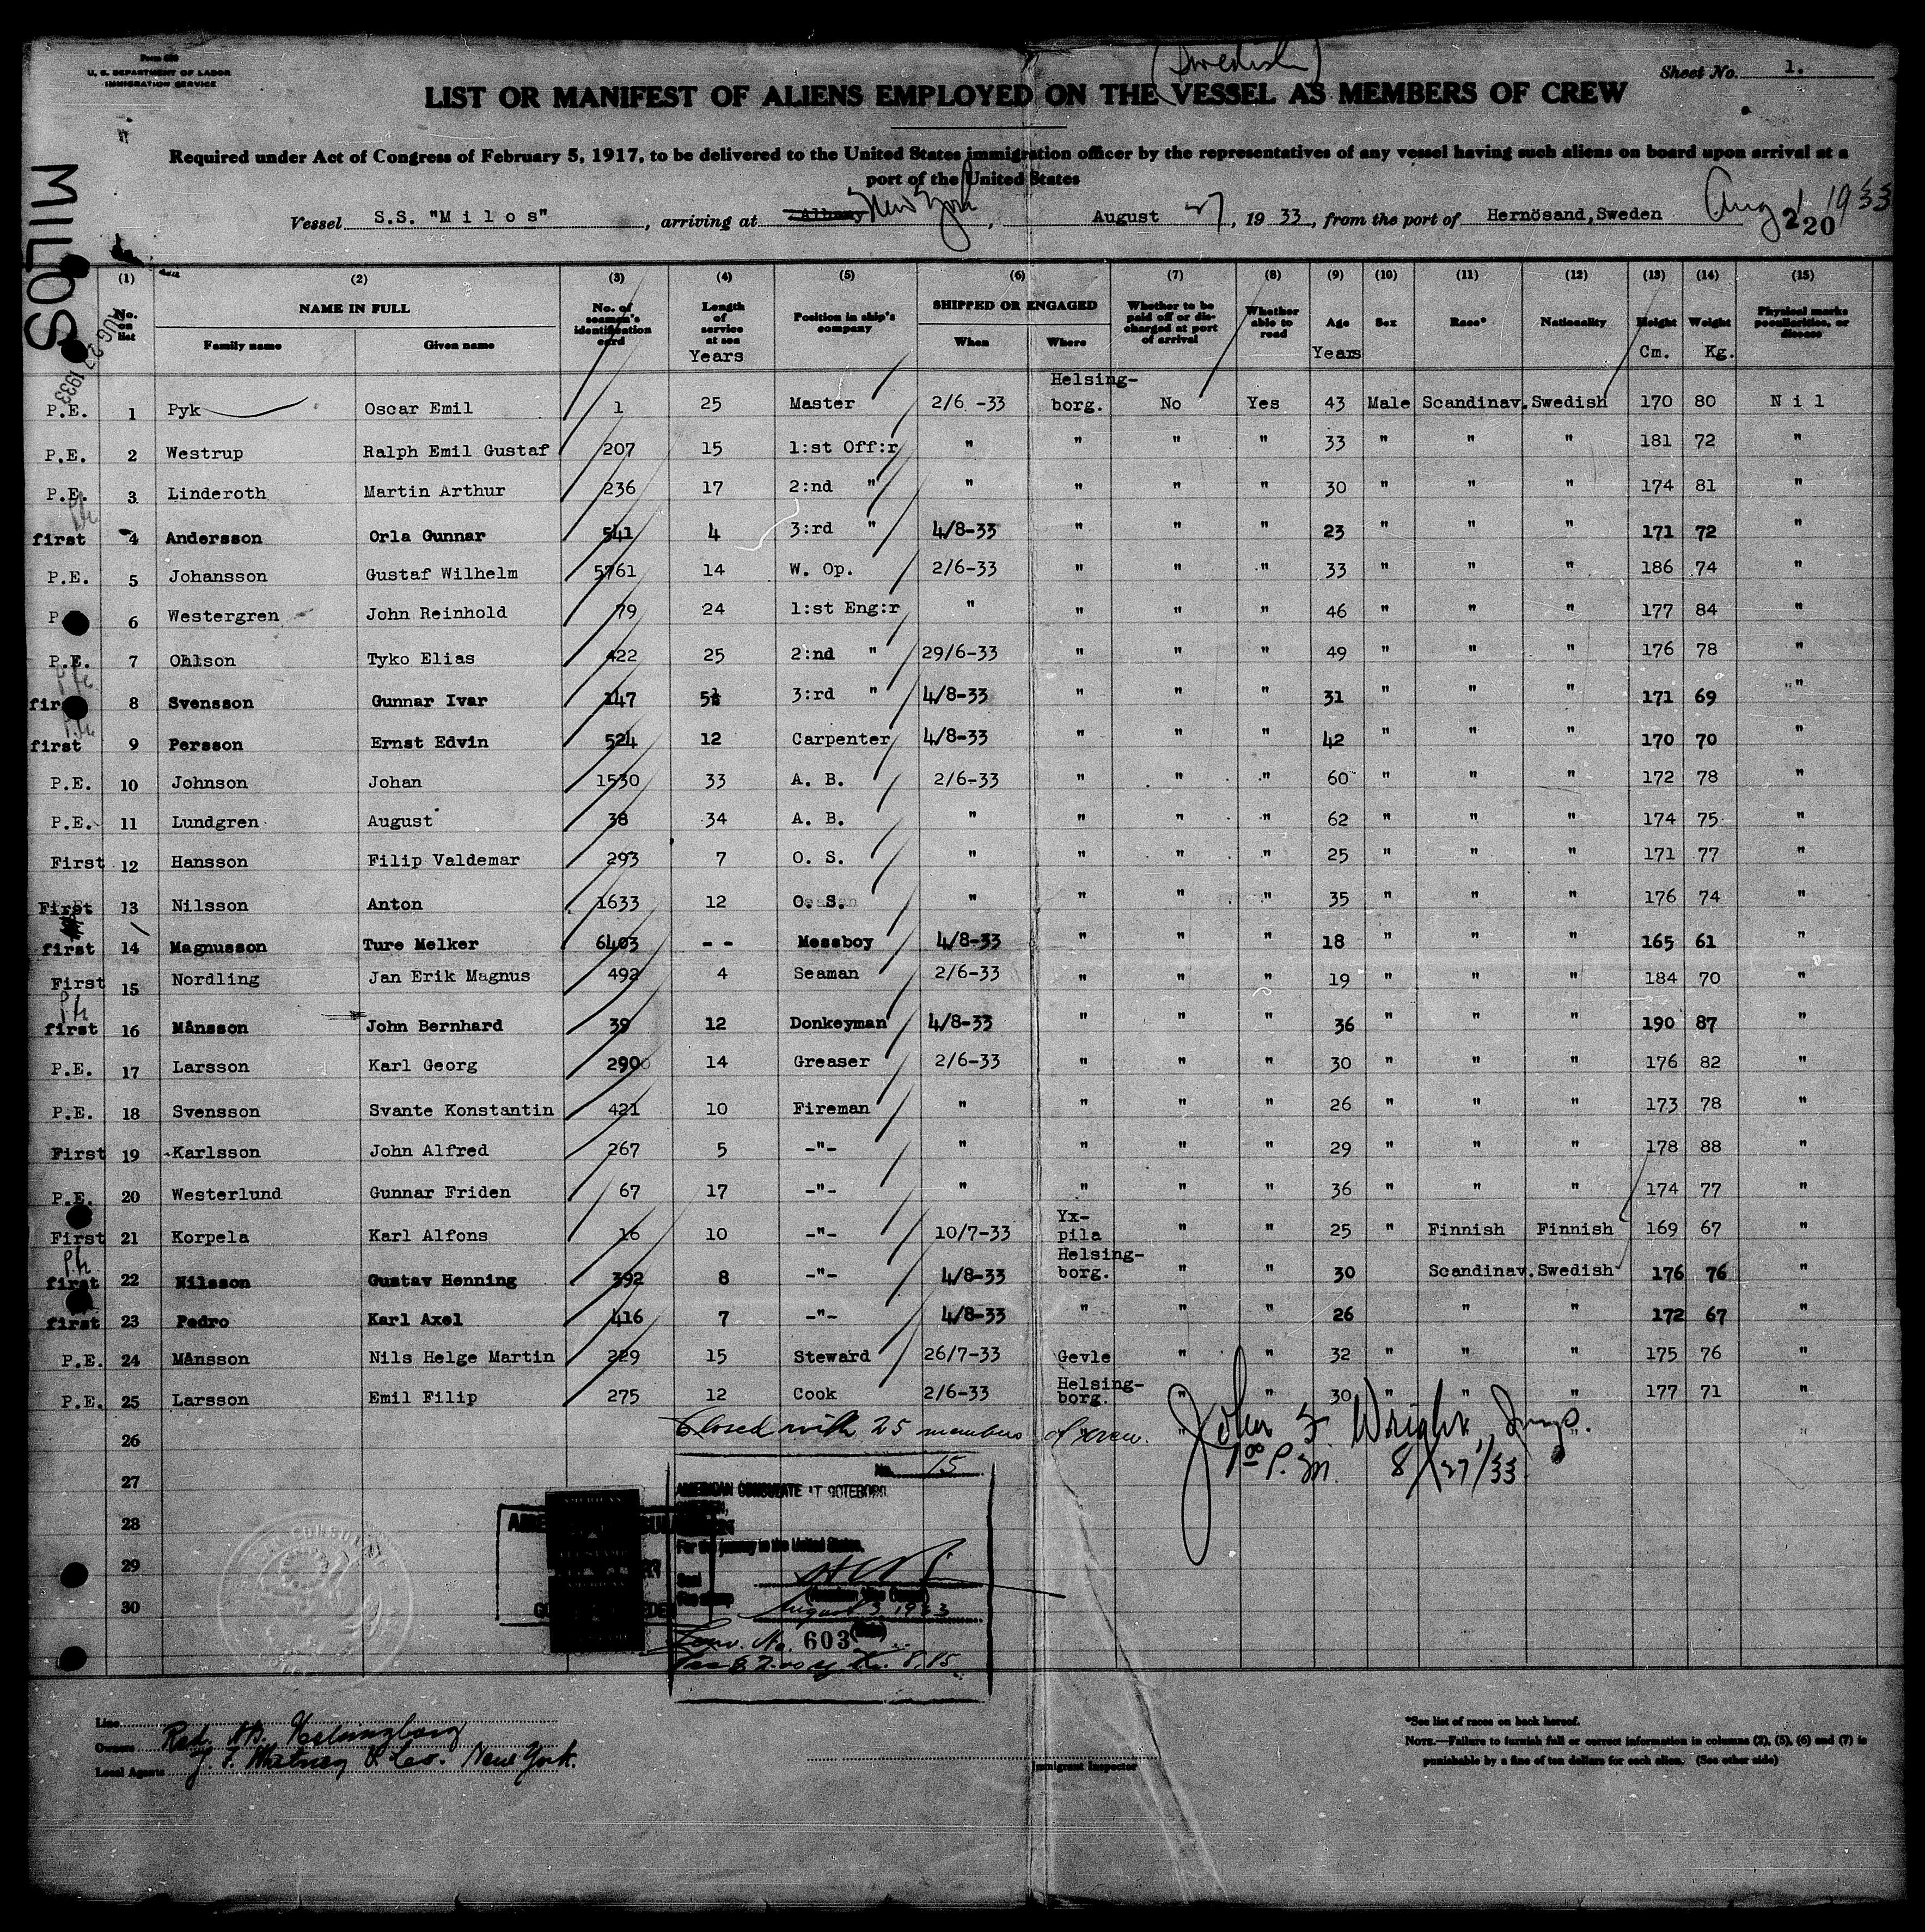 Form 680
U. S. DEPARTMENT OF LABOR
IMMIGRATION SERVICE
(Swedish)
Sheet No. 1.
LIST OR MANIFEST OF ALIENS EMPLOYED ON THE VESSEL AS MEMBERS OF CREW
Required under Act of Congress of February 5, 1917, to be delivered to the United States immigration officer by the representatives of any vessel having such aliens on board upon arrival at a
port of the United States
Vessel S.S. "Milos", arriving at Albany New York, August 27, 1933, from the port of Hernösand, Sweden Aug 1933
220
MILOS
AUG 27 1933
(1) (2) (3) (4) (5) (6) (7) (8) (9) (10) (11) (12) (13) (14) (15)
No. on list NAME IN FULL Family name Given name No. of seamen's identification card Length of service at sea Years Position in ship's company SHIPPED OR ENGAGED When Where Whether to be paid off or discharged at port of arrival Whether able to read Age Years Sex Race* Nationality Height Cm. Weight Kg. Physical marks peculiarities, or disease
P.E. 1 Pyk Oscar Emil 1 25 Master 2/6 -33 Helsing-borg. No Yes 43 Male Scandinav. Swedish 170 80 Nil
P.E. 2 Westrup Ralph Emil Gustaf 207 15 1:st Off:r " " " " 33 " " " 181 72 "
P.E. 3 Linderoth Martin Arthur 236 17 2:nd " " " " " 30 " " " 174 81 "
first 4 Andersson Orla Gunnar 541 4 3:rd " 4/8-33 " " " 23 " " " 171 72 "
P.E. 5 Johansson Gustaf Wilhelm 5761 14 W. Op. 2/6-33 " " " 33 " " " 186 74 "
P. 6 Westergren John Reinhold 79 24 1:st Eng:r " " " " 46 " " " 177 84 "
P.E. 7 Ohlson Tyko Elias 422 25 2:nd " 29/6-33 " " " 49 " " " 176 78 "
first 8 Svensson Gunnar Ivar 147 5½ 3:rd " 4/8-33 " " " 31 " " " 171 69 "
first 9 Persson Ernst Edvin 524 12 Carpenter 4/8-33 " " " 42 " " " 170 70 "
P.E. 10 Johnson Johan 1530 33 A. B. 2/6-33 " " " 60 " " " 172 78 "
P.E. 11 Lundgren August 38 34 A. B. " " " " 62 " " " 174 75 "
First 12 Hansson Filip Valdemar 293 7 O. S. " " " " 25 " " " 171 77 "
First 13 Nilsson Anton 1633 12 O. S. " " " " 35 " " " 176 74 "
first 14 Magnusson Ture Melker 6403 - - Messboy 4/8-33 " " " 18 " " " 165 61 "
First 15 Nordling Jan Erik Magnus 492 4 Seaman 2/6-33 " " " 19 " " " 184 70 "
first 16 Månsson John Bernhard 39 12 Donkeyman 4/8-33 " " " 36 " " " 190 87 "
P.E. 17 Larsson Karl Georg 290 14 Greaser 2/6-33 " " " 30 " " " 176 82 "
P.E. 18 Svensson Svante Konstantin 421 10 Fireman " " " " 26 " " " 173 78 "
First 19 Karlsson John Alfred 267 5 -"- " " " " 29 " " " 178 88 "
P.E. 20 Westerlund Gunnar Friden 67 17 -"- " " " " 36 " " " 174 77 "
First 21 Korpela Karl Alfons 16 10 -"- 10/7-33 Yx-pila " " 25 " Finnish Finnish 169 67 "
first 22 Nilsson Gustav Henning 392 8 -"- 4/8-33 Helsing-borg. " " 30 Scandinav. Swedish 176 76 "
first 23 Pedro Karl Axel 416 7 -"- 4/8-33 " " " 26 " " 172 67 "
P.E. 24 Månsson Nils Helge Martin 229 15 Steward 26/7-33 Gevle " " 32 " " " 175 76 "
P.E. 25 Larsson Emil Filip 275 12 Cook 2/6-33 Helsing-borg. " " 30 " " " 177 71 "
26 Closed with 25 members of crew. John F. Wright, Insp.
1 00 P.M. 8/27/33
27
28
29
30
No. 15
AMERICAN CONSULATE AT GOTEBORG,
For the journey to the United States.
Seal
(American Vice Consul)
August 3 1933
(Date)
Serv. No. 603
Line
Owners Red. AB. Helsingborg
Local Agents J. F. Whitney & Co. New York.
Immigrant Inspector
*See list of races on back hereof.
NOTE.—Failure to furnish full or correct information in columns (2), (5), (6) and (7) is
punishable by a fine of ten dollars for each alien. (See other side)